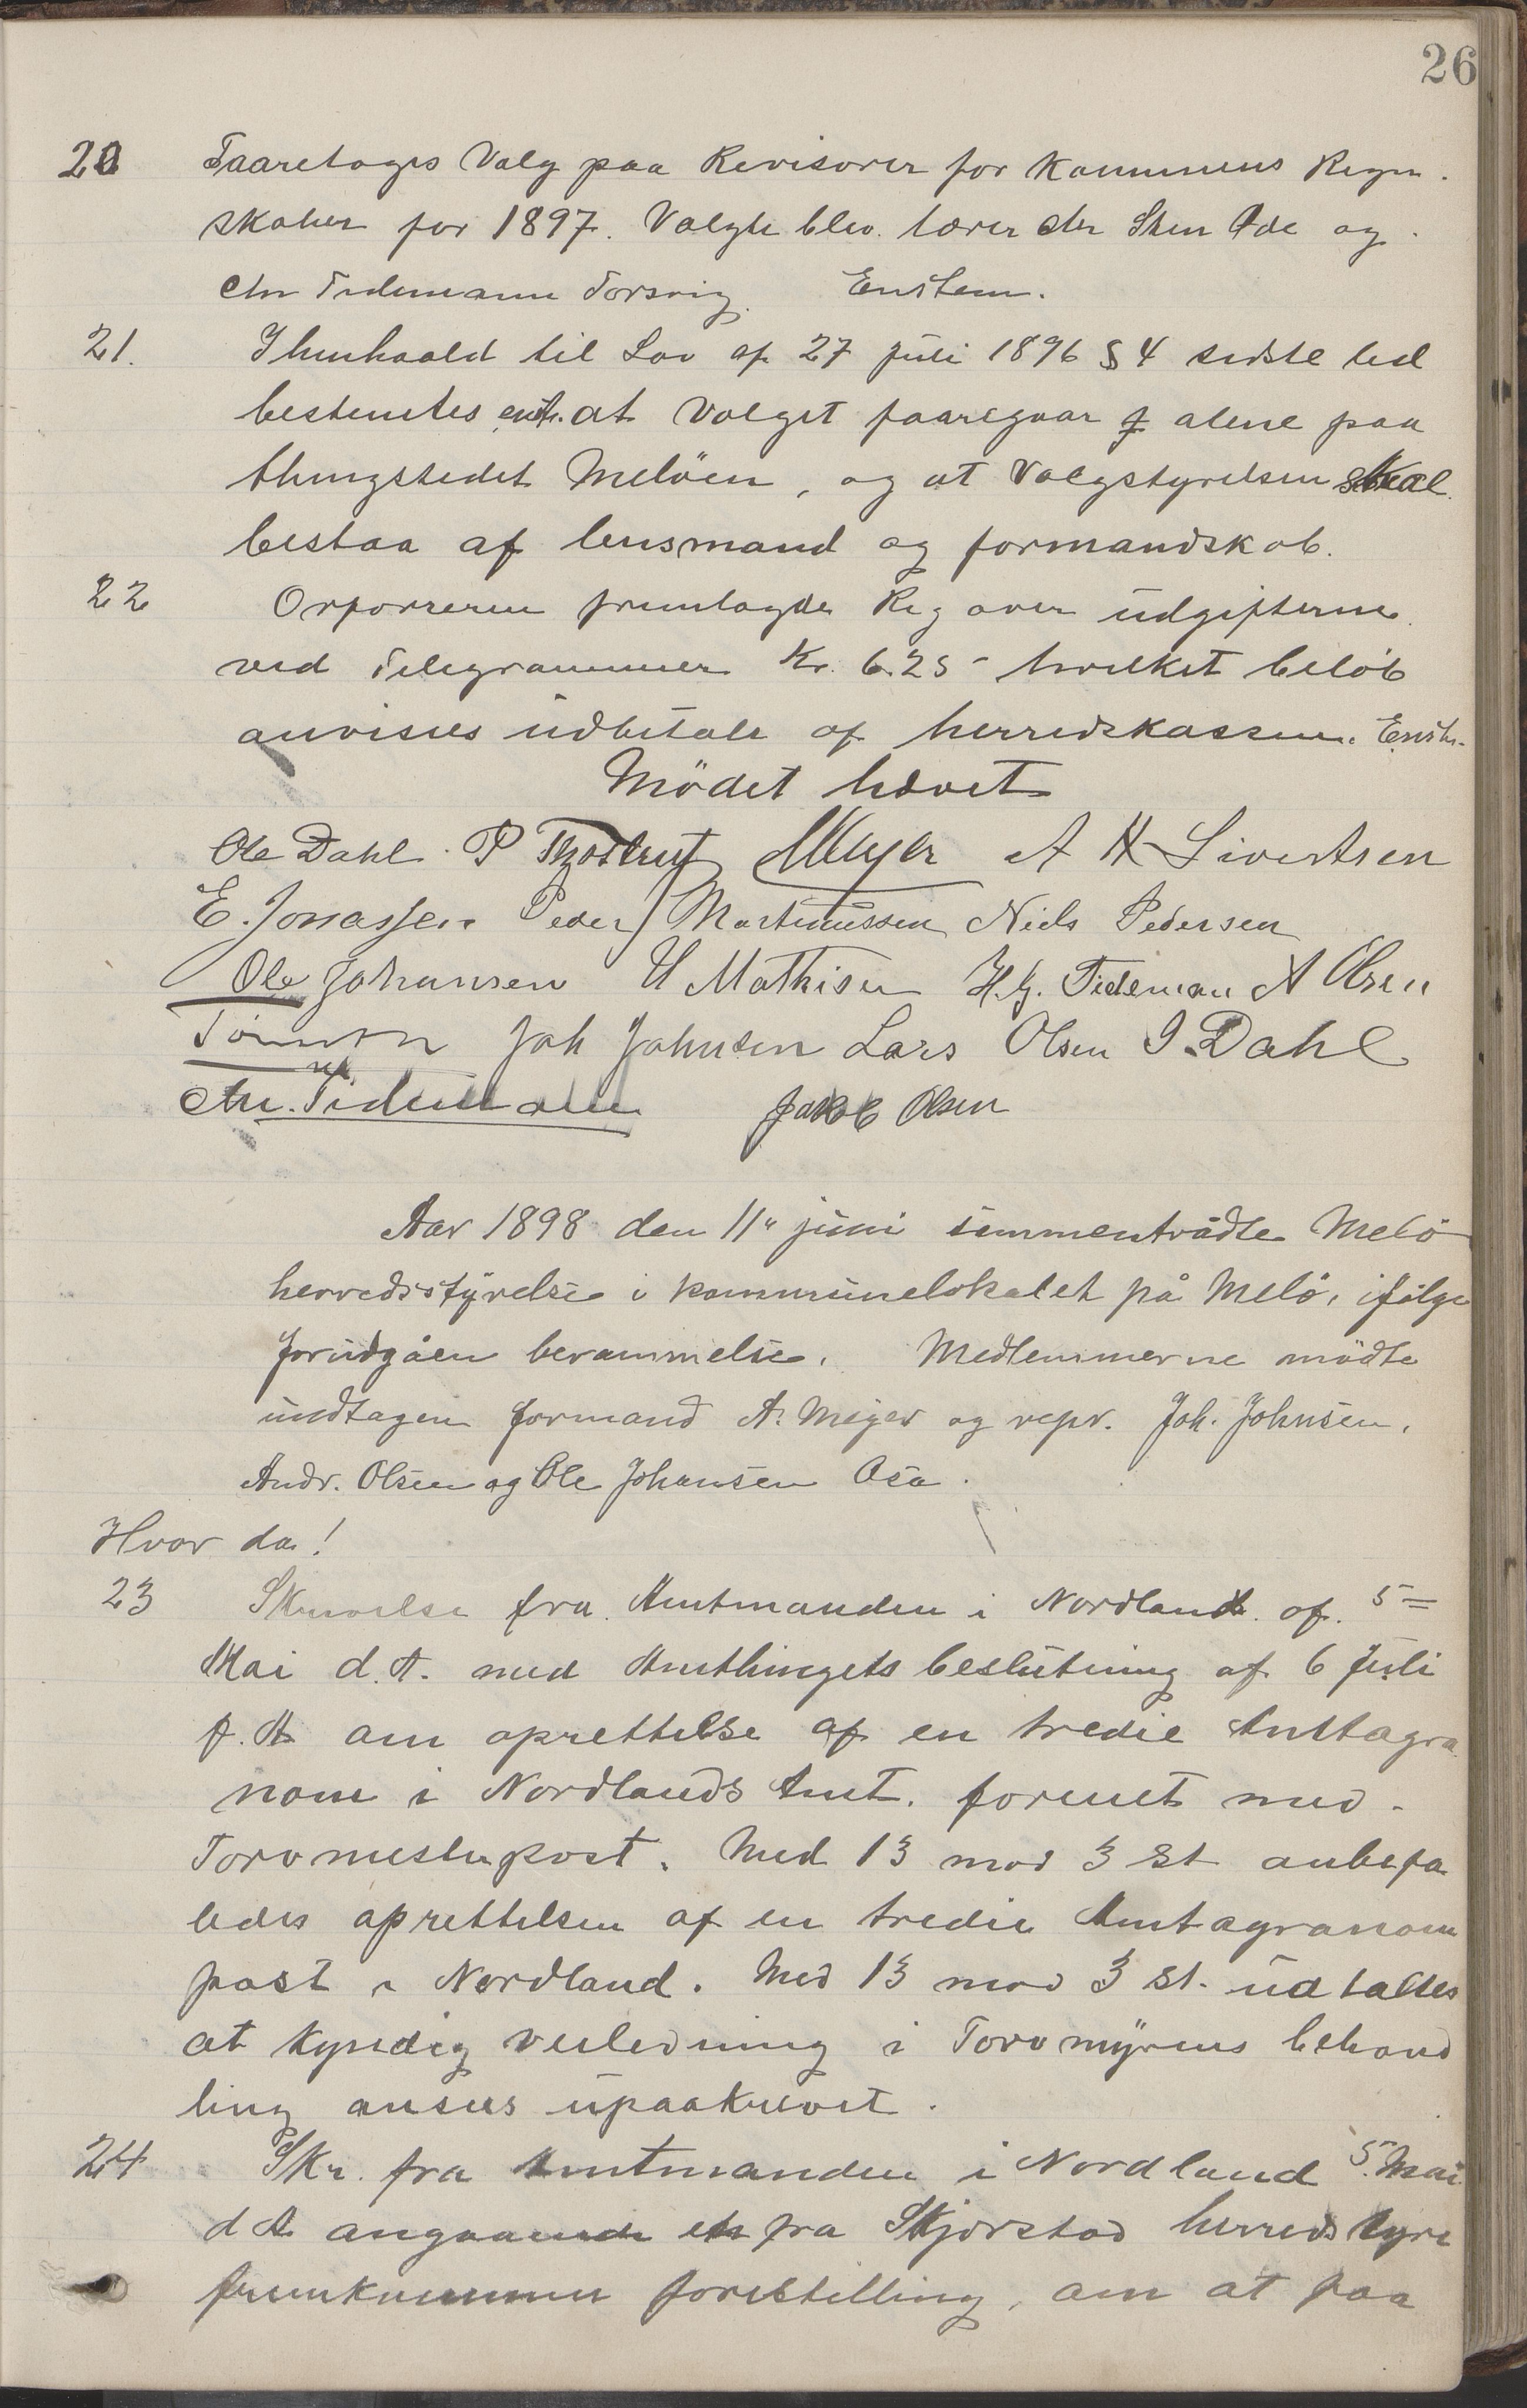 26
20 Faaretoges Valg paa Revisorer for Kommunens Regn-
skaber for 1897. Valgte blev. lærer Chr Sten Øde og
Chr Tidemann Torsvig. Enstem.
21. I henhaald til Lov af 27 juli 1896 § 4 sidste led
bestemtes enst. at Valget faaregaar alene paa
thingstedet Meløen, og at Valgstyrelsen skal
bestaa af lensmand og formandskab.
22 Ordføreren fremlagde Reg over udgifterne
ved Telegrammer Kr. 6.25 - hvilket beløb
anvises udbetalt af herredskassen. Enst.
Mödet hævet
Ole Dahl. P Thostrup AMeyer A H Sivertsen
E. Jonassen Peder Martinussen Niels Pedersen
Ole Johansen U Mathisen H. G. Tideman A Olsen
Joh Johnsen Lars Olsen I. Dahl
Chr. Tidemann Jakob Olsen
Aar 1898 den 11" juni sammentrådte Melö
herredsstyrelse i kommunelokalet på Melö, ifölge
forudgåen berammelse. Medlemmerne mödte
undtagen formand A. Meyer og repr. Joh. Johnsen,
Andr. Olsen og Ole Johansen Osa.
Hvor da!
23 Skrivelse fra Amtmanden i Nordland af 5=
Mai d. A. med Amtthingets beslutning af 6 Juli
f. A om oprettelse af en tredie Amtagro
nom i Nordlands Amt. forenet med
Torvmesterpost. Med 13 mod 3 St anbefa
ledes oprettelsen af en tredie Amtagronom
post i Nordland. Med 13 mod 3 St. udtaltes
at kyndig veiledning i Torvmyrens behand
ling ansees upaakrævet.
24 Skr. fra Amtmanden i Nordland 5. Mai
d A angaaende en fra Skjerstad herredstyre
fremkommen forestilling, om at faa